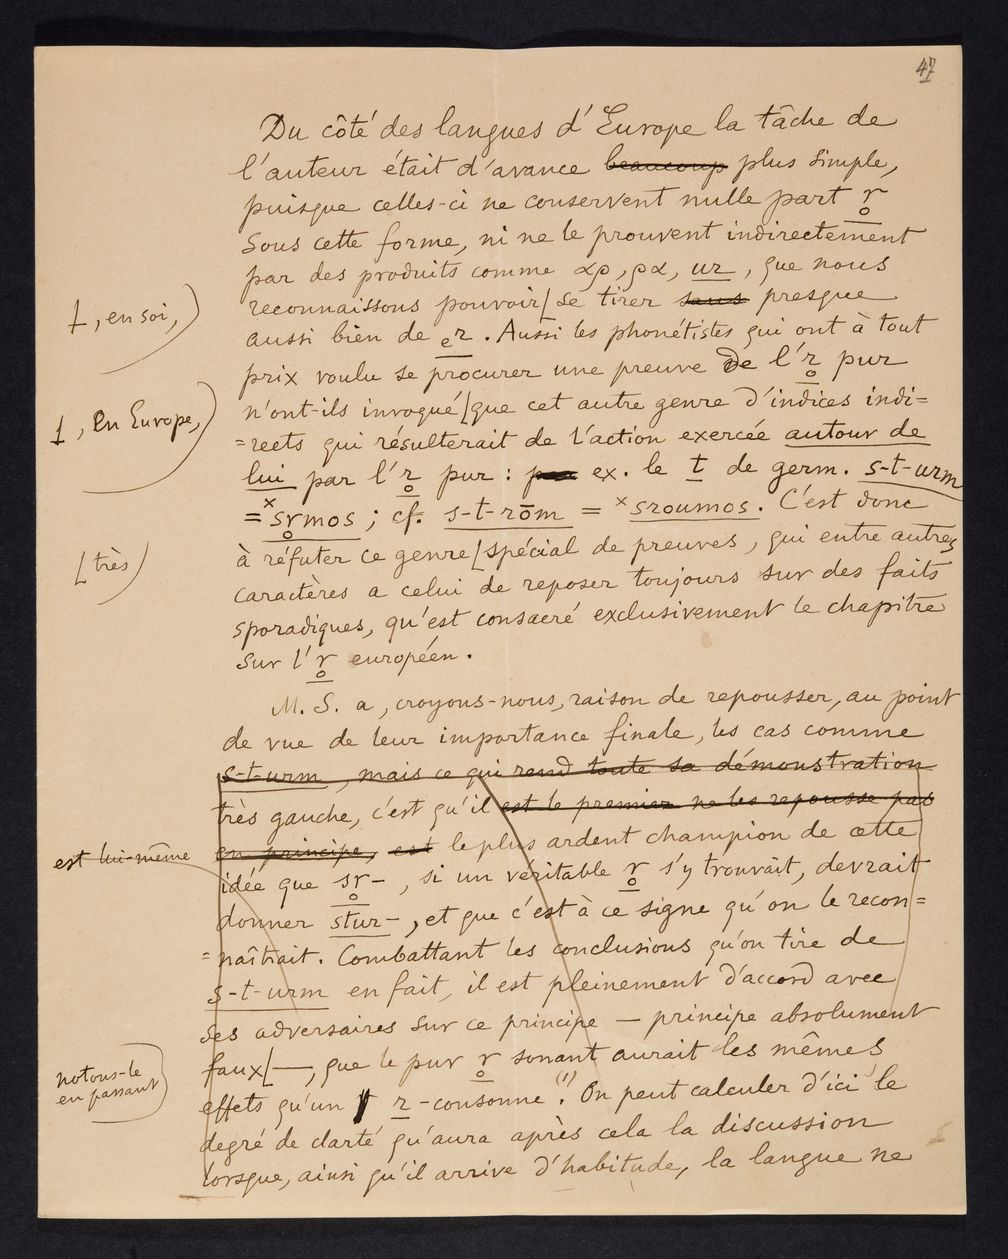 47
Du côté des langues d'Europe la tâche de
l'auteur était d'avance beaucoup plus simple,
puisque celles-ci ne conservent nulle part r̥
sous cette forme, ni ne le prouvent indirectement
par des produits comme αρ, ρα, ur, que nous
reconnaissons pouvoir[ se tirer sans presque
[, en soi,)
aussi bien de er. Aussi les phonétistes qui ont à tout
prix voulu se procurer une preuve de l'r̥ pur
n'ont-ils invoqué[ que cet autre genre d'indices indi=
[, en Europe,)
=rects qui résulterait de l'action exercée autour de
lui par l'r̥ pur : ex. le t de germ. s-t-urm
= ˣsr̥mos ; cf. s-t-rōm = ˣsroumos. C'est donc
à réfuter ce genre[ spécial de preuves, qui entre autres
[ très)
caractères a celui de reposer toujours sur des faits
sporadiques, qu'est consacré exclusivement le chapitre
sur l'r̥ européen.
M. S. a, croyons-nous, raison de repousser, au point
de vue de leur importance finale, les cas comme
s-t-urm, mais ce qui rend toute sa démonstration
très gauche, c'est qu'il est le premier ne les repousse pas
en principe, est le plus ardent champion de cette
est lui-même
idée que sr̥-, si un véritable r̥ s'y trouvait, devrait
donner stur-, et que c'est à ce signe qu'on le recon=
=naîtrait. Combattant les conclusions qu'on tire de
s-t-urm en fait, il est pleinement d'accord avec
ses adversaires sur ce principe — principe absolument
faux[ —, que le pur r̥ sonant aurait les mêmes
notons-le
en passant)
effets qu'un r-consonne (1). On peut calculer d'ici le
degré de clarté qu'aura après cela la discussion
lorsque, ainsi qu'il arrive d'habitude, la langue ne